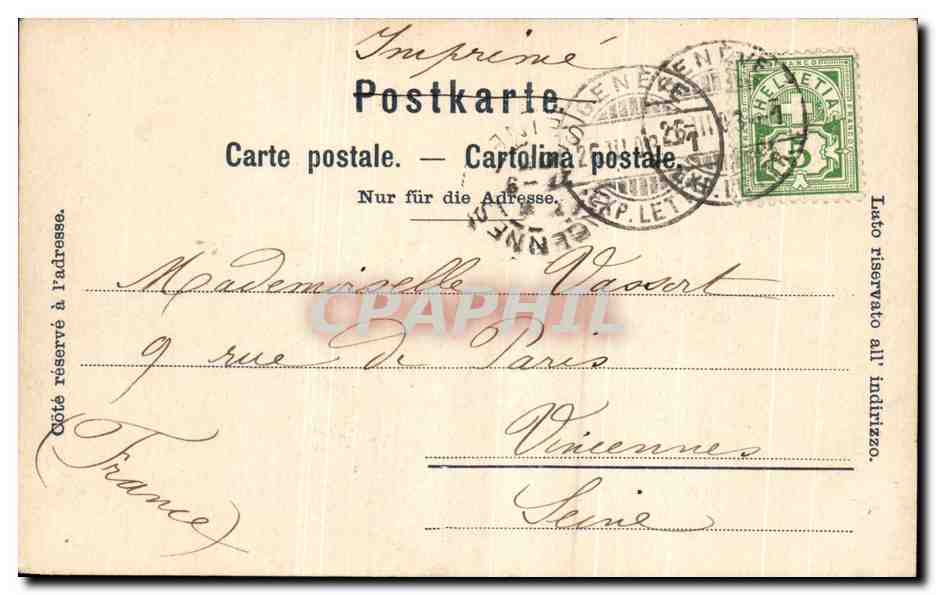 Imprimé
Postkarte.
Carte postale. — Cartolina postale.
Nur für die Adresse.
GENÈVE
EXP. LETTR.
GENÈVE
HELVETIA
FRANCO
5
VINCENNES
SEINE
Côté réservé à l'adresse.
Lato riservato all' indirizzo.
Mademoiselle Vassort
CPAPHIL
9 rue de Paris
Vincennes
(France)
Seine